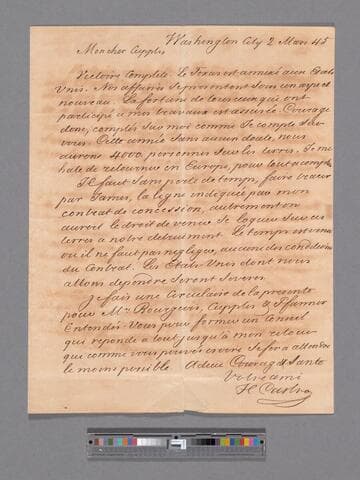 Washington City 2 Mars 45
Mon cher Cupples
Victoire Complete. Le Texas est annexé aux Etats
Unis. Nos affaires se presentent sous un aspect
nouveau. La fortune de tous ceux qui ont
participé a mes travaux est assurée. Courage
donc, comptez sur moi comme je compte sur
vous. Cette année sans aucun doute, nous
aurons 4000 personnes sur les terres. Je me
hate de retourner en Europe, pour tout accomplir
Il faut sans perte de temp, faire tracer
par James, la ligne indiquée par mon
contrat de concession, autrement on
auroit le droit de venir se loquer sur ces
terres a notre detriment. Le temp est venu
ou il ne faut pas negliger, aucune des conditions
du Contrat. Les Etats Unis dont nous
allons dependre seront severes.
Je fais une Circulaire de la presente
pour Mr Bourgeois, Cupples &
Entendez Vous pour former un Conseil
qui reponde a tout jusqu'a mon retour
qui comme vous pouvez croire se fera attendre
le moins possible Adieu Courage et Santé
Votre ami
H Castro